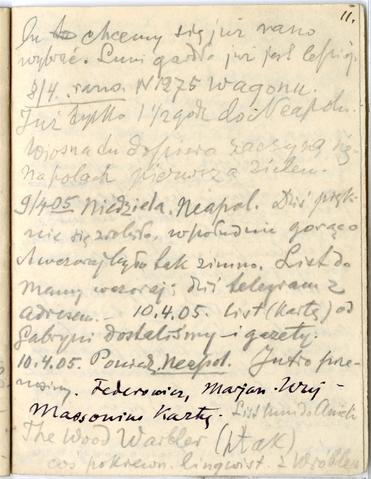 11.
In to chcemy się już rano
wybrać. Luni gardło już jest lepiej.
8/4. rano. N 1275 wagonu.
Już tylko 1 1/2 godz. do Neapolu.
Wiosna tu dopiero zaczyna się.
na polach pierwsza zieleń.
9/4 05 Niedziela. Neapol. Dziś pięk-
nie się zrobiło, w południe gorąco
A wczoraj było tak zimno. List do
mamy wczoraj; dziś telegram z
adresem. - 10.4.05. List (Kartę) od
Gabryni dostaliśmy - i gazety.
10.4.05. Poniedz. Neapol. Jutro prze-
nosimy. Federowicz, Marjan Wuj-
Massonius Kartę. List Luni do Anieli
The Wood Warbler (ptak)
coś pokrewn. lingwist. z Wróblem